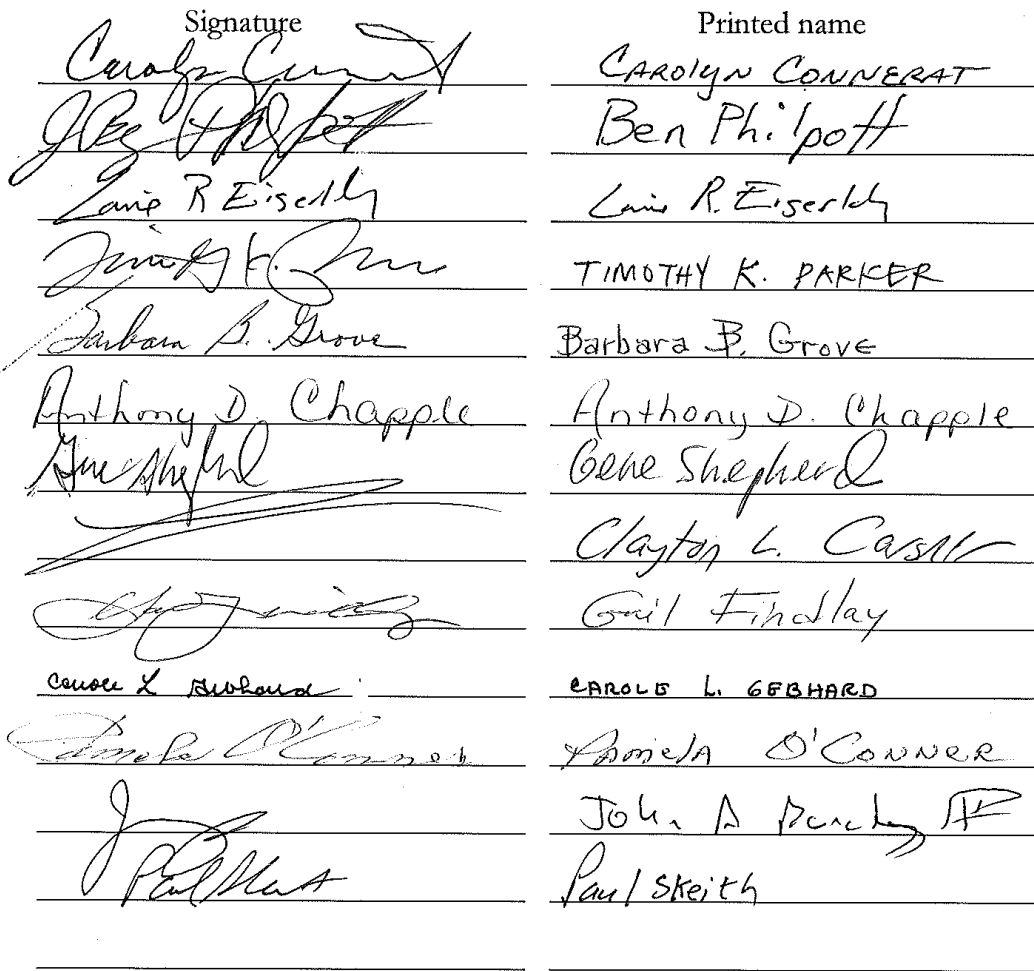 Signature Printed name
Carolyn CAROLYN CONNERAT
Philpott Ben Philpott
R Eiserloh R. Eiserloh
K. TIMOTHY K. PARKER
Barbara B. Grove Barbara B. Grove
Anthony D. Chapple Anthony D. Chapple
Gene Shepherd Gene Shepherd
Clayton L.
Gail Findlay
Carole L Gebhard CAROLE L. GEBHARD
Pamela O'Conner PAmelA O'CONNER
John A
Paul Paul Skeith